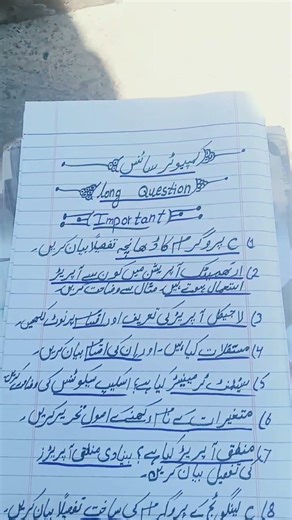 کمپیوٹر سائنس
Long Question
Important
1) C پروگرام کا ڈھانچہ تفصیلاً بیان کریں۔
2) ارتھمیٹک آپریشن میں کون سے آپریٹر
استعمال ہوتے ہیں۔ مثال سے وضاحت کریں۔
3) لاجیکل آپریٹر کی تعریف اور اقسام پر نوٹ لکھیں۔
4) مستقلات کیا ہیں۔ اور ان کی اقسام بیان کریں۔
5) سٹیٹمنٹ ٹرمینیٹر کیا ہے؟ اسکیپ سیکوئنس کی وضاحت کریں
6) متغیرات کے نام رکھنے کے اصول تحریر کریں۔
7) منطقی آپریٹر کیا ہے؟ بنیادی منطقی آپریٹرز
کی تفصیل بیان کریں۔
8) C لینگوئج کے پروگرام کی ساخت تفصیلاً بیان کریں۔